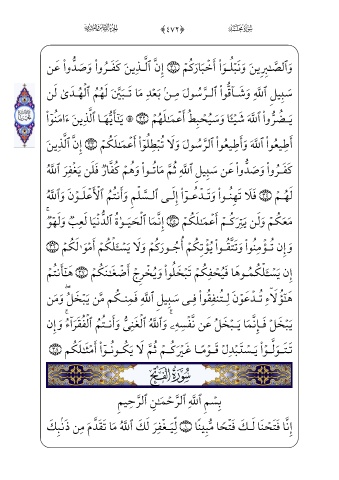 سُورَةُ مُحَمَّد ﴿٤٧٢﴾
وَٱلصَّٰبِرِينَ وَنَبْلُوَا۟ أَخْبَارَكُمْ ۝ إِنَّ ٱلَّذِينَ كَفَرُوا۟ وَصَدُّوا۟ عَن
سَبِيلِ ٱللَّهِ وَشَآقُّوا۟ ٱلرَّسُولَ مِنۢ بَعْدِ مَا تَبَيَّنَ لَهُمُ ٱلْهُدَىٰ لَن
يَضُرُّوا۟ ٱللَّهَ شَيْـًٔا وَسَيُحْبِطُ أَعْمَٰلَهُمْ ۝ ۞ يَٰٓأَيُّهَا ٱلَّذِينَ ءَامَنُوٓا۟
أَطِيعُوا۟ ٱللَّهَ وَأَطِيعُوا۟ ٱلرَّسُولَ وَلَا تُبْطِلُوٓا۟ أَعْمَٰلَكُمْ ۝ إِنَّ ٱلَّذِينَ
كَفَرُوا۟ وَصَدُّوا۟ عَن سَبِيلِ ٱللَّهِ ثُمَّ مَاتُوا۟ وَهُمْ كُفَّارٌ فَلَن يَغْفِرَ ٱللَّهُ
لَهُمْ ۝ فَلَا تَهِنُوا۟ وَتَدْعُوٓا۟ إِلَى ٱلسَّلْمِ وَأَنتُمُ ٱلْأَعْلَوْنَ وَٱللَّهُ
مَعَكُمْ وَلَن يَتِرَكُمْ أَعْمَٰلَكُمْ ۝ إِنَّمَا ٱلْحَيَوٰةُ ٱلدُّنْيَا لَعِبٌ وَلَهْوٌ ۚ
وَإِن تُؤْمِنُوا۟ وَتَتَّقُوا۟ يُؤْتِكُمْ أُجُورَكُمْ وَلَا يَسْـَٔلْكُمْ أَمْوَٰلَكُمْ ۝
إِن يَسْـَٔلْكُمُوهَا فَيُحْفِكُمْ تَبْخَلُوا۟ وَيُخْرِجْ أَضْغَٰنَكُمْ ۝ هَٰٓأَنتُمْ
هَٰٓؤُلَآءِ تُدْعَوْنَ لِتُنفِقُوا۟ فِى سَبِيلِ ٱللَّهِ فَمِنكُم مَّن يَبْخَلُ ۖ وَمَن
يَبْخَلْ فَإِنَّمَا يَبْخَلُ عَن نَّفْسِهِۦ ۚ وَٱللَّهُ ٱلْغَنِىُّ وَأَنتُمُ ٱلْفُقَرَآءُ ۚ وَإِن
تَتَوَلَّوْا۟ يَسْتَبْدِلْ قَوْمًا غَيْرَكُمْ ثُمَّ لَا يَكُونُوٓا۟ أَمْثَٰلَكُم ۝
سُورَةُ ٱلْفَتْحِ
بِسْمِ ٱللَّهِ ٱلرَّحْمَٰنِ ٱلرَّحِيمِ
إِنَّا فَتَحْنَا لَكَ فَتْحًا مُّبِينًا ۝ لِّيَغْفِرَ لَكَ ٱللَّهُ مَا تَقَدَّمَ مِن ذَنۢبِكَ